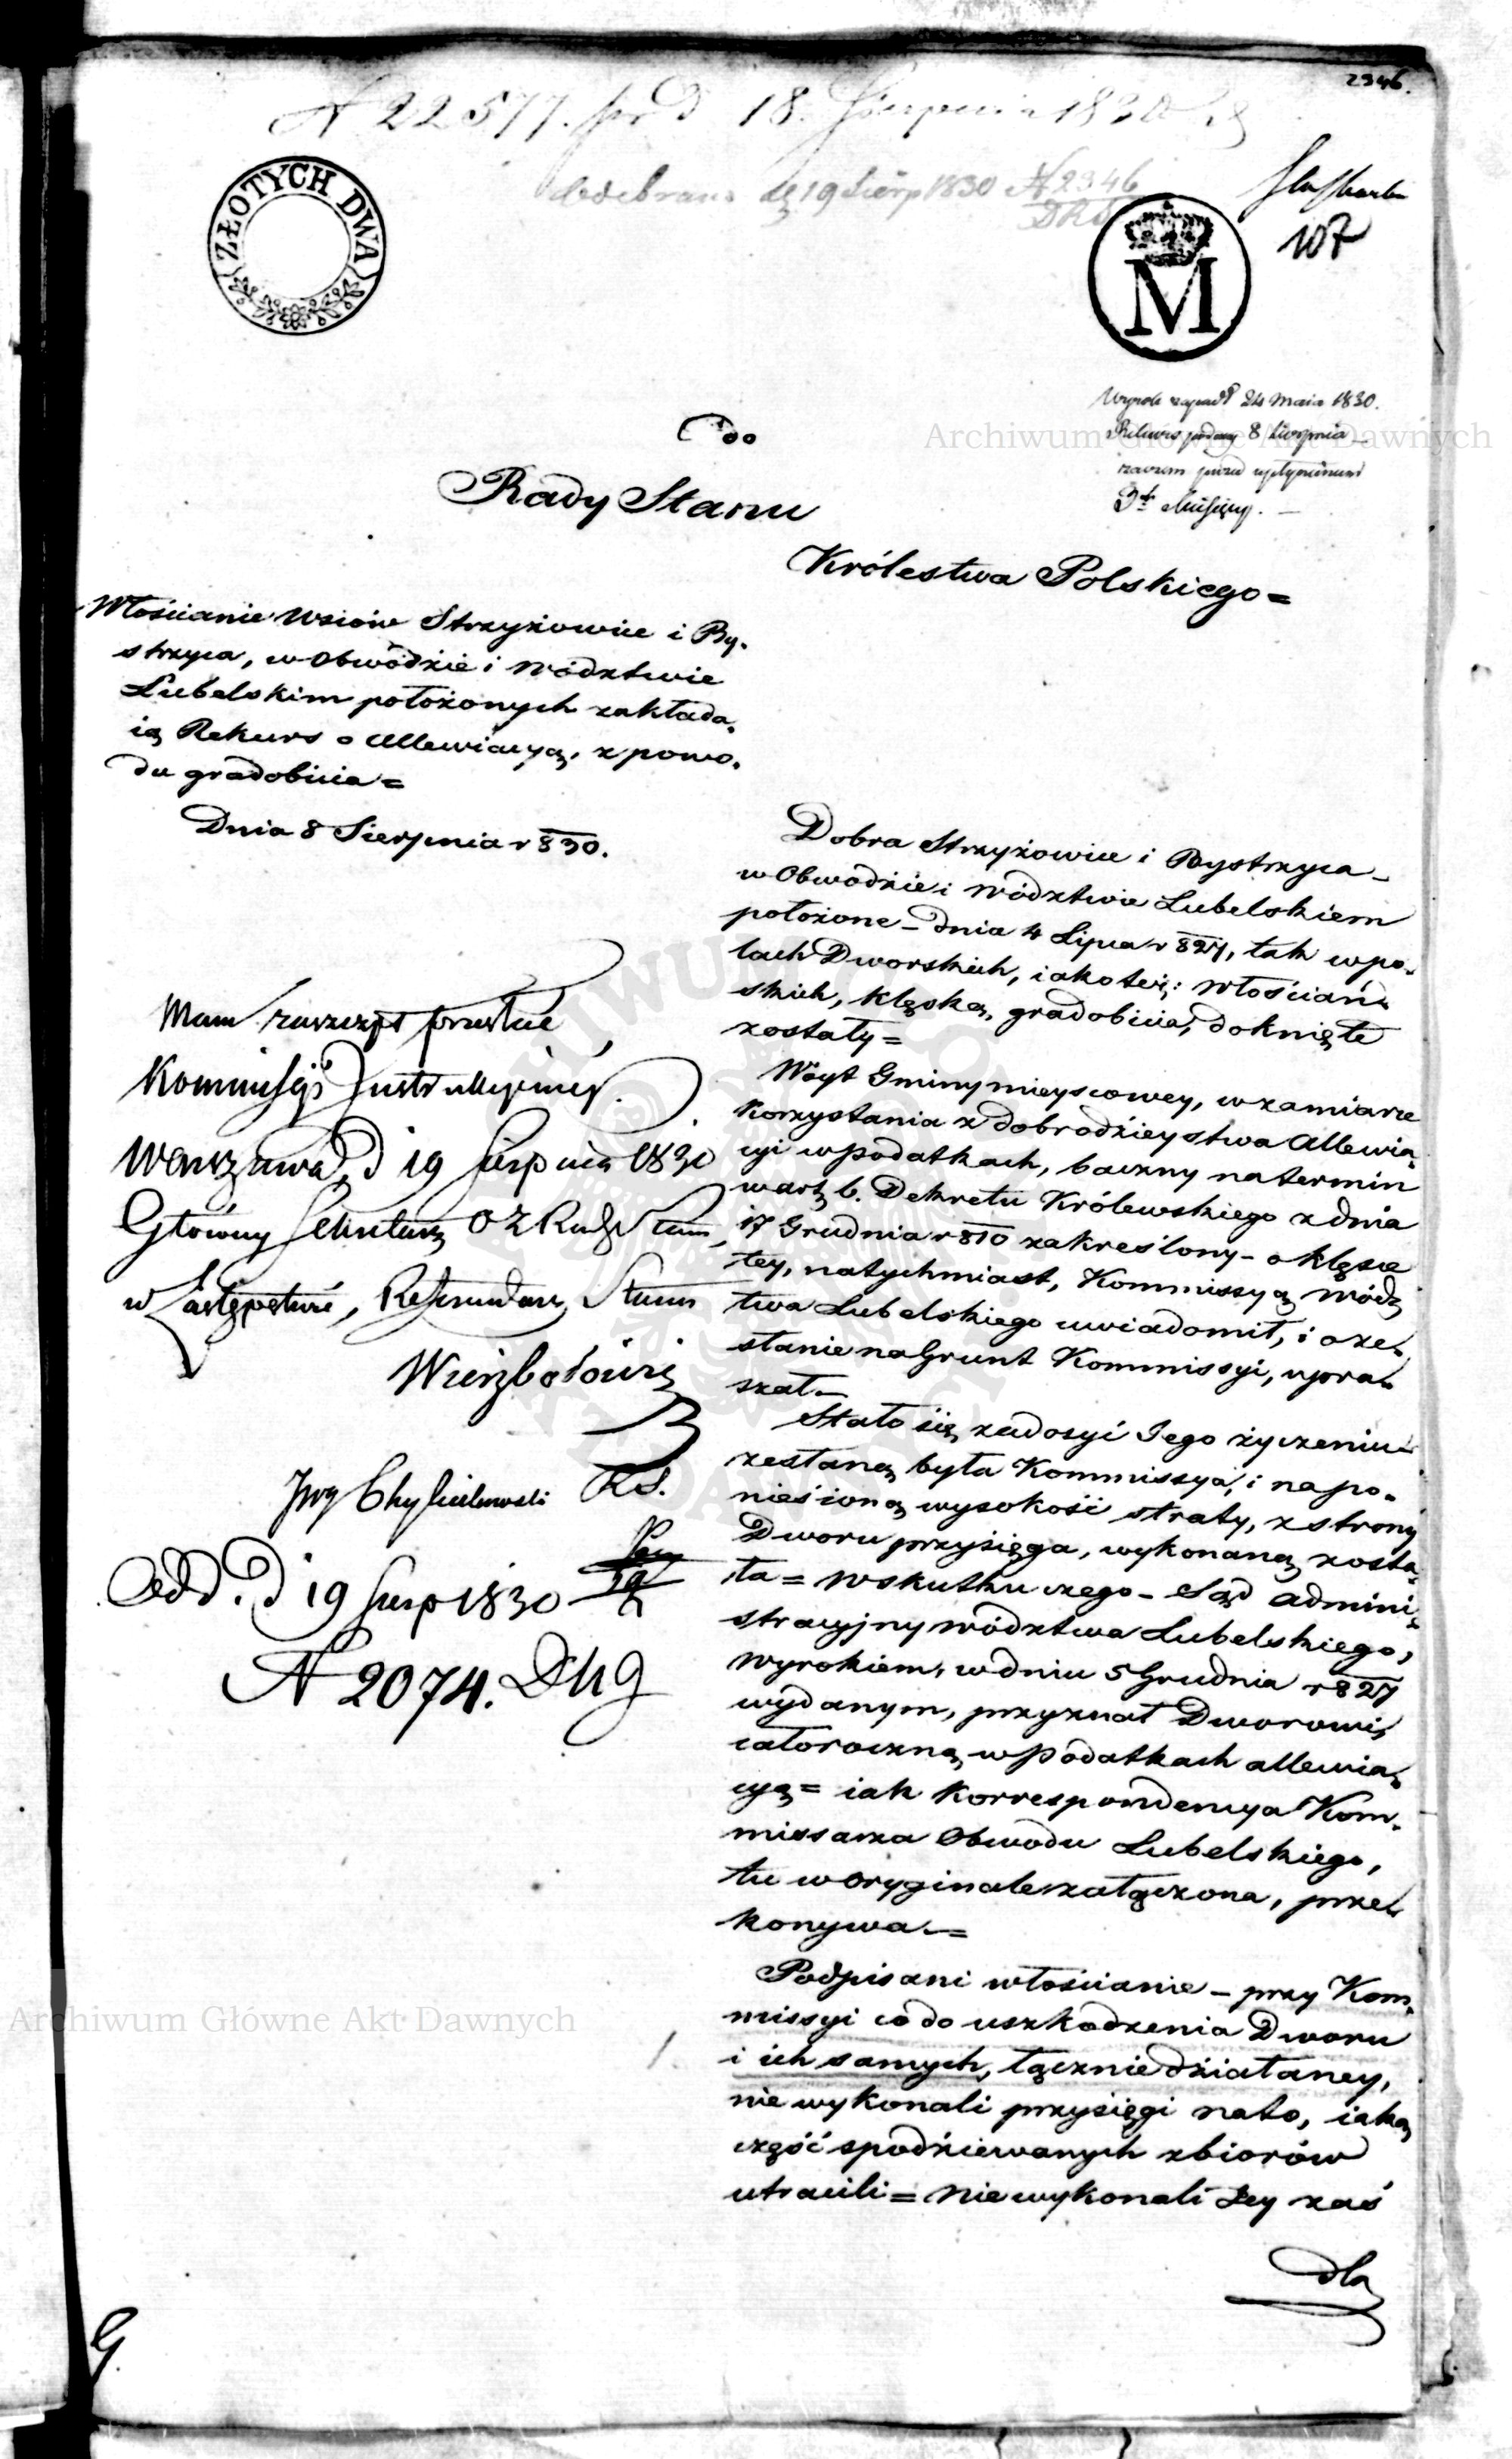 2346.
N 22577. pr d 18. Sierpnia 1830
Odebrano dn 19 Sierp 1830 N 2346
107
ZŁOTYCH DWA
M
Wyrok zapadł 24 Maia 1830.
Rekurs podany 8 Sierpnia
zatem przed upłynieniem
3ch Miesięcy.
Do
Rady Stanu
Królestwa Polskiego =
Włościanie Wsiów Strzyżowice i By-
strzyca, w Obwodzie i Wództwie
Lubelskim położonych zakłada-
ią Rekurs o Allewiacyą, z powo-
du gradobicia =
Dnia 8 Sierpnia r 830.
Mam zaszczyt przesłać
Kommissyi Instrukcyiney.
Warszawa, d 19 Sierpnia 1830
Główny Sekretarz Rady Stanu
w Zastępstwie, Referendarz Stanu
Wierzbołowicz
Odd. d 19 Sierp 1830
N 2074. DKg
Dobra Strzyżowice i Bystrzyca –
w Obwodzie i Wództwie Lubelskiem
położone – dnia 4 Lipca r 827, tak w po-
lach Dworskich, iako też: włościań-
skich, klęską, gradobicia, doknięte
zostały =
Wóyt Gminy mieyscowey, w zamiarze
korzystania z dobrodzieystwa Allewia-
cyi w podatkach, baczny na termin
w art. 6. Dekretu Królewskiego z dnia
17 Grudnia r 810 zakreślony – o klęsce
tey, natychmiast, Kommissyą Wódz-
twa Lubelskiego uwiadomił, i o ze-
słanie na Grunt Kommissyi, upra-
szał –
Stało się zadosyć Jego życzeniu
zesłaną była Kommissya, i na po-
niesioną wysokość straty, z strony
Dworu przysięga, wykonaną zosta-
ła = w skutku czego – Sąd Admini-
stracyjny Wództwa Lubelskiego,
wyrokiem, w dniu 5 Grudnia r 827
wydanym, przyznał Dworowi,
całoroczną w podatkach allewia-
cyą = iak korrespondencya Kom-
missarza Obwodu Lubelskiego,
tu w oryginale załączona, prze-
konywa =
Podpisani włościanie – przy Kom-
missyi co do uszkodzenia Dworu
i ich samych, łącznie działaney,
nie wykonali przysięgi na to, iaką
część spodziewanych zbiorów
utracili = Nie wykonali Jey zaś
dla
Archiwum Główne Akt Dawnych
Archiwum Główne Akt Dawnych